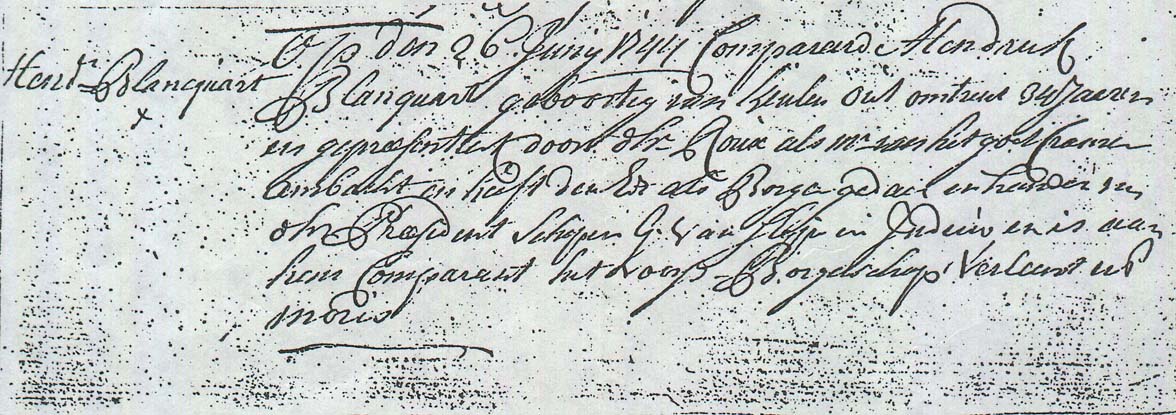 Op den 26 Junij 1744 Compareerde Hendrick
Hendr. Blancquart
Blanquart geboortig van Keulen Out omtrent 34 Jaaren
en gepresenteert door dhr Roux als mr van het
ambacht en heeft den Ed als Borger gedaen in handen van
dhr President Schepen G. van Slijp in Judicio en is aan
hem Comparant het voorsz Borgerschap Verleent ut
moris